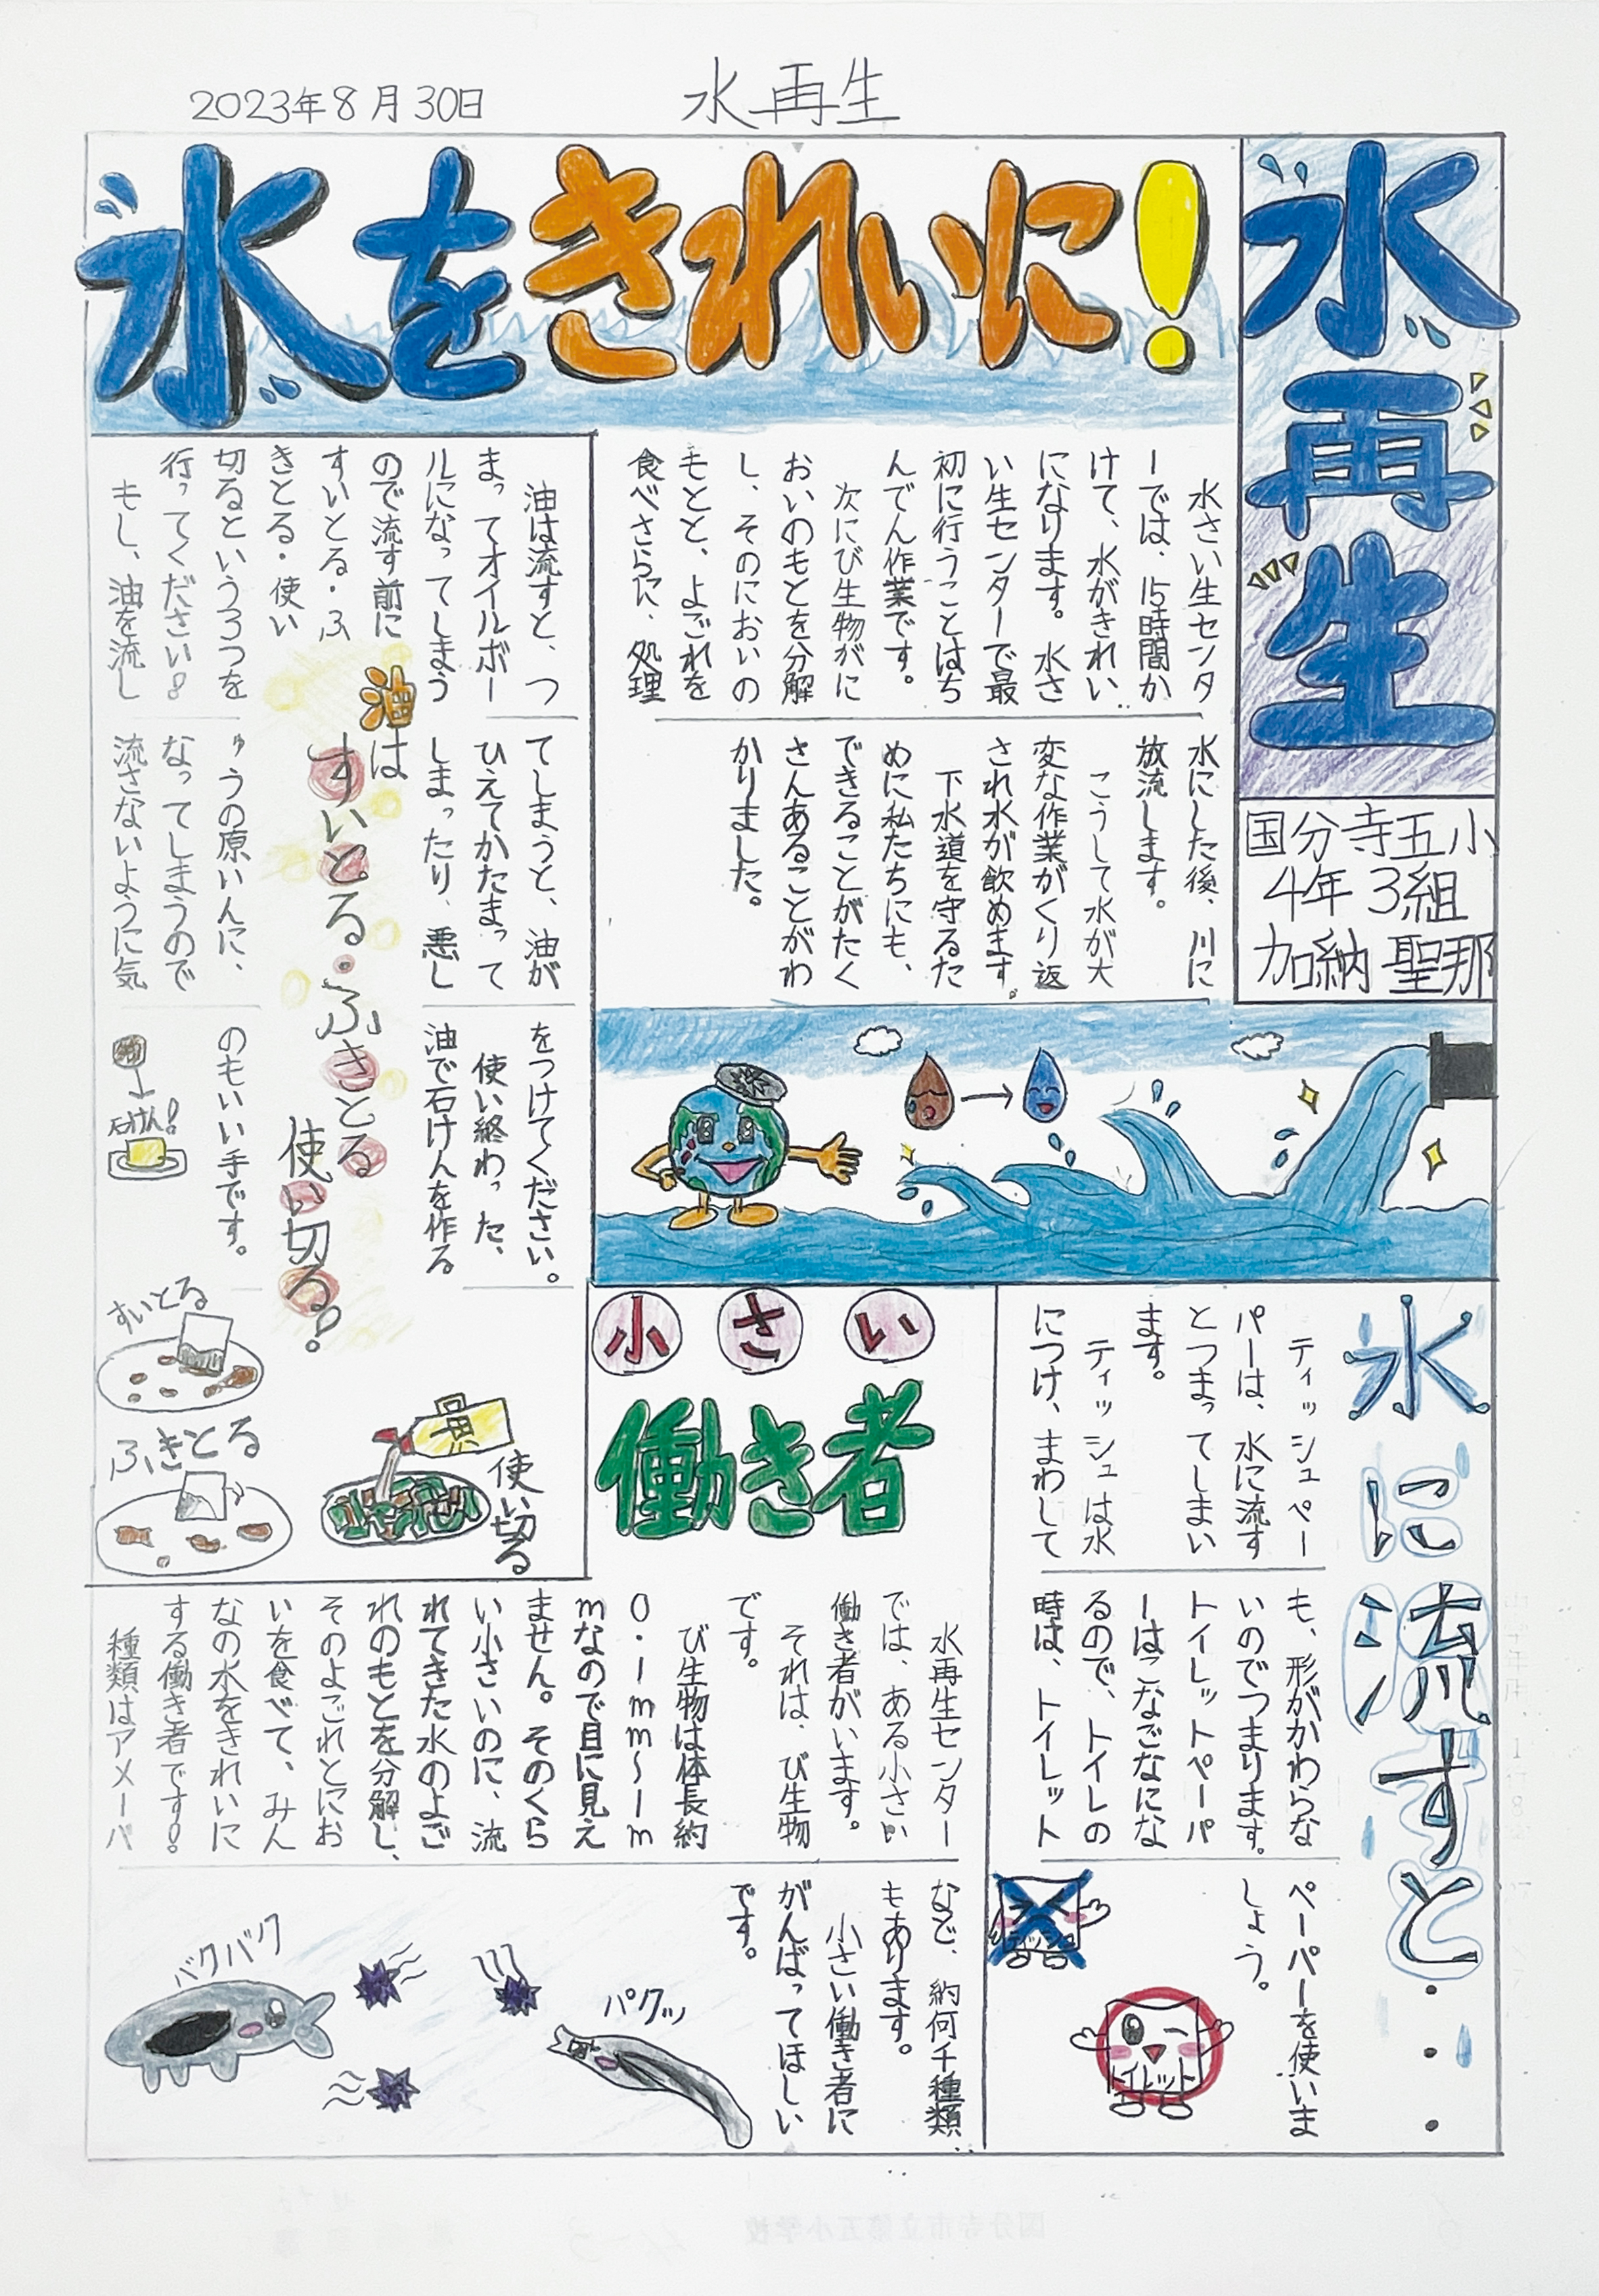 2023年8月30日
水再生
水再生
国分寺五小
4年3組
加納聖那
水をきれいに!
水さい生センタ
ーでは、15時間か
けて、水がきれい
になります。水さ
い生センターで最
初に行うことはち
んでん作業です。
次にび生物がに
おいのもとを分解
し、そのにおいの
もとと、よごれを
食べさらに、処理
水にした後、川に
放流します。
こうして水が大
変な作業がくり返
され水が飲めます。
下水道を守るた
めに私たちにも、
できることがたく
さんあることがわ
かりました。
油は
すいとる・ふきとる
使い切る!
油は流すと、つ
まってオイルボー
ルになってしまう
ので流す前に
すいとる・ふ
きとる・使い
切るという3つを
行ってください!
もし、油を流し
てしまうと、油が
ひえてかたまって
しまったり、悪し
ゅうの原いんに、
なってしまうので
流さないように気
をつけてください。
使い終わった、
油で石けんを作る
のもいい手です。
油
石けん!
すいとる
ふきとる
使い切る
水に流すと・・・
ティッシュペー
パーは、水に流す
とつまってしまい
ます。
ティッシュは水
につけ、まわして
も、形がかわらな
いのでつまります。
トイレットペーパ
ーはこなごなにな
るので、トイレの
時は、トイレット
ペーパーを使いま
しょう。
トイレット
小さい
働き者
水再生センター
では、ある小さい
働き者がいます。
それは、び生物
です。
び生物は体長約
0.1mm~1m
mなので目に見え
ません。そのくら
い小さいのに、流
れてきた水のよご
れのもとを分解し、
そのよごれとにお
いを食べて、みん
なの水をきれいに
する働き者です!
種類はアメーバ
など、約何千種類
もあります。
小さい働き者に
がんばってほしい
です。
パクッ
バクバク